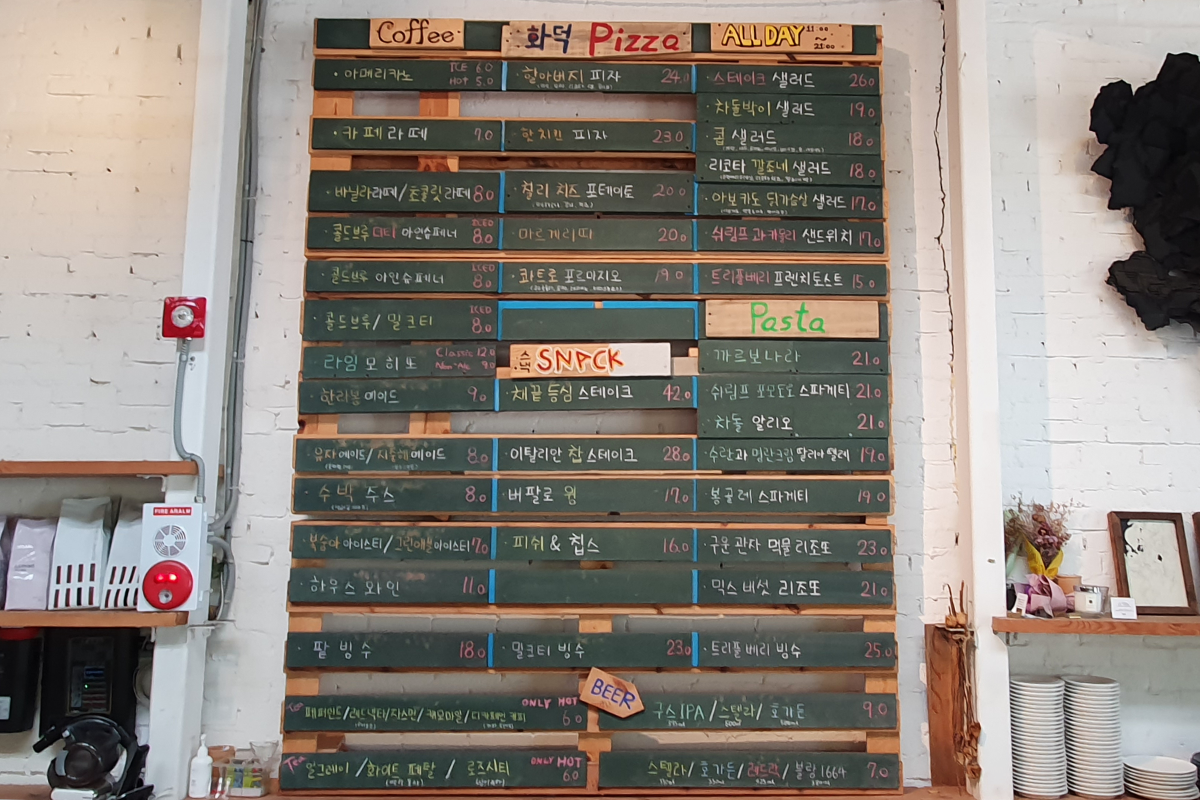 Coffee
· 아메리카노 ICE 6.0 HOT 5.0
· 카페라떼 7.0
· 바닐라라떼/초콜릿라떼 8.0
· 콜드브루 더티 아인슈페너 ICED 8.0
· 콜드브루 아인슈페너 ICED 8.0
· 콜드브루/밀크티 ICED 8.0
· 라임 모히또 Classic 12.0 Non-Alc 9.0
· 한라봉에이드 9.0
· 유자에이드/자몽에이드 8.0
· 수박 주스 8.0
· 복숭아아이스티/그린애플아이스티 7.0
· 하우스 와인 11.0
· 팥 빙수 18.0
화덕 Pizza
· 할아버지 피자 24.0
· 핫치킨 피자 23.0
· 칠리 치즈 포테이토 20.0
· 마르게리따 20.0
· 콰트로 포르마지오 19.0
스낵 SNACK
· 채끝 등심 스테이크 42.0
· 이탈리안 찹 스테이크 28.0
· 버팔로 윙 17.0
· 피쉬 & 칩스 16.0
· 밀크티 빙수 23.0
ALL DAY 11:00 ~ 21:00
· 스테이크 샐러드 26.0
· 차돌박이 샐러드 19.0
· 콥 샐러드 18.0
리코타 깔조네 샐러드 18.0
· 아보카도 닭가슴살 샐러드 17.0
· 쉬림프 과카몰리 샌드위치 17.0
· 트리플베리 프렌치토스트 15.0
Pasta
· 까르보나라 21.0
· 쉬림프 뽀모도로 스파게티 21.0
· 차돌 알리오 21.0
· 수란과 명란크림 딸리아텔레 19.0
· 봉골레 스파게티 19.0
· 구운 관자 먹물 리조또 23.0
· 믹스 버섯 리조또 21.0
· 트리플 베리 빙수 25.0
Tea 페퍼민트/레드넥타/자스민/캐모마일/디카페인 커피 ONLY HOT 6.0
Tea 얼그레이/화이트 페탈/로즈시티 ONLY HOT 6.0
BEER
구스IPA/스텔라/호가든 9.0
스텔라/호가든/레드락/블랑1664 7.0
FIRE ALARM